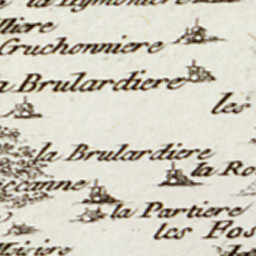 lliere
Gruchonniere
a Brulardiere
les
la Brulardiere
la Ro
eccanne
la Partiere
les Fos